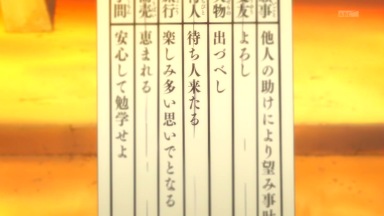 他人の助けにより望み事
よろし
出づべし
待ち人来たる
楽しみ多い思いでとなる
恵まれる
安心して勉学せよ